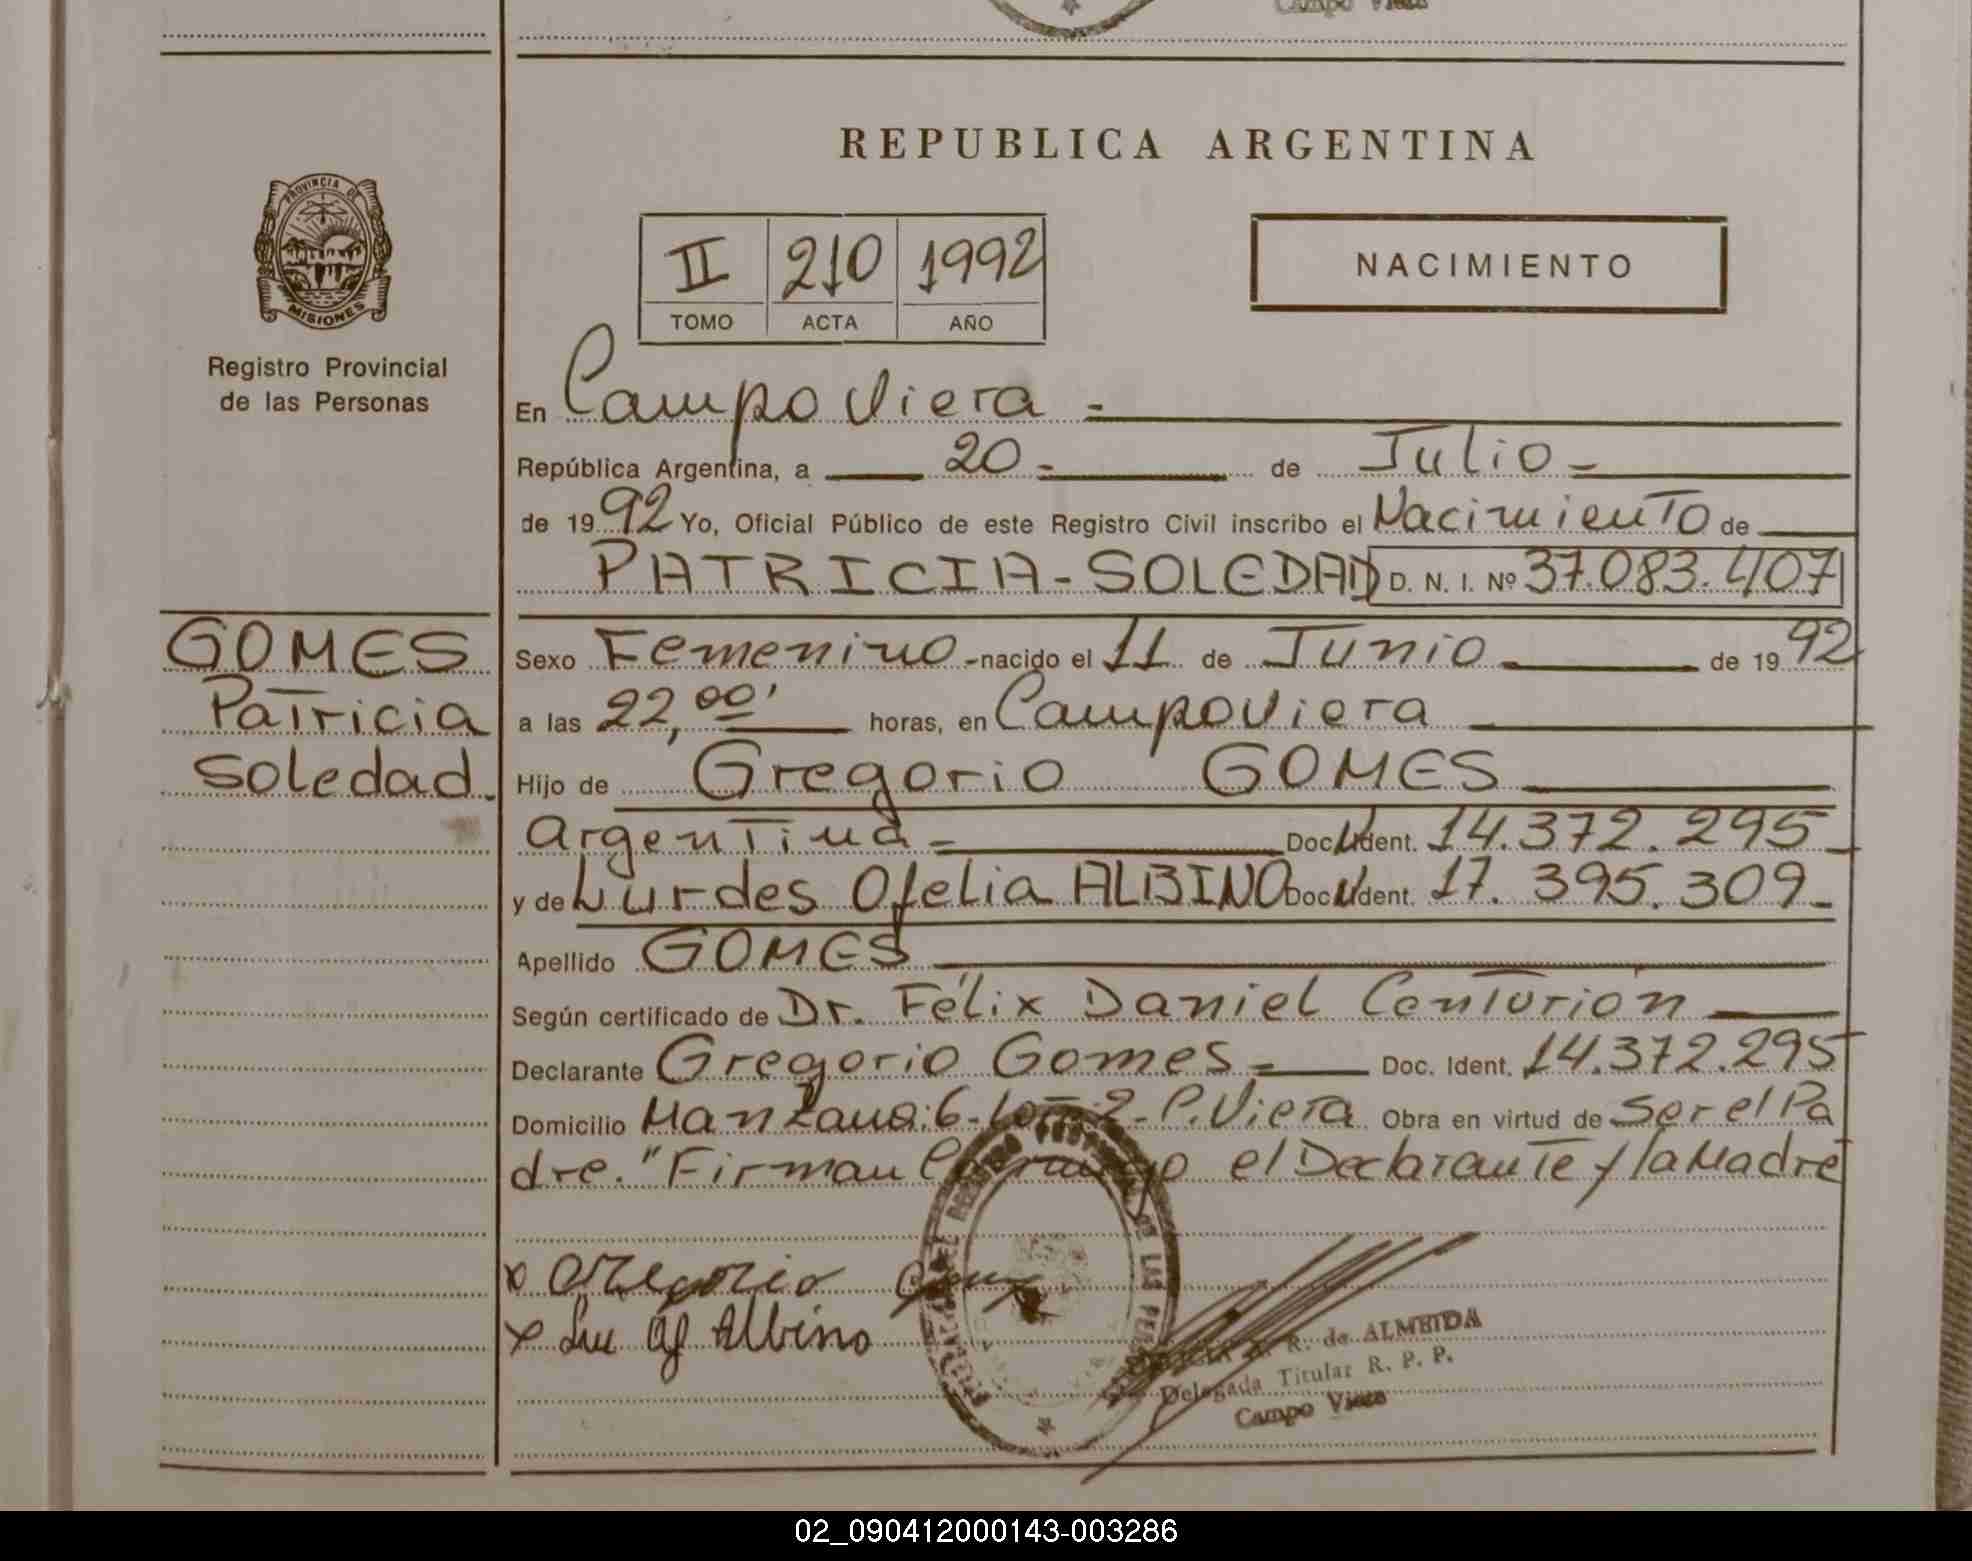 Campo Viera
REPUBLICA ARGENTINA
PROVINCIA DE
MISIONES
Registro Provincial
de las Personas
II 210 1992
TOMO ACTA AÑO
NACIMIENTO
En Campo Viera -
República Argentina, a 20 - de Julio -
de 1992 Yo, Oficial Público de este Registro Civil inscribo el Nacimiento de
PATRICIA - SOLEDAD D. N. I. Nº 37.083.407
GOMES
Patricia
Soledad.
Sexo Femenino - nacido el 11 de Junio de 1992
a las 22,00' horas, en Campo Viera
Hijo de Gregorio GOMES
Argentina - Doc. Ident. 14.372.295
y de Lurdes Ofelia ALBINO Doc. Ident. 17.395.309
Apellido GOMES
Según certificado de Dr. Félix Daniel Centurión
Declarante Gregorio Gomes - Doc. Ident. 14.372.295
Domicilio Manzana: 6 - Lote 2 - C. Viera Obra en virtud de ser el Pa
dre. "Firman Conmigo el Declarante y la Madre
x Gregorio
x Lu Of Albino
REGISTRO PROVINCIAL DE LAS
R. de ALMEIDA
Delegada Titular R. P. P.
Campo Viera
02_090412000143-003286